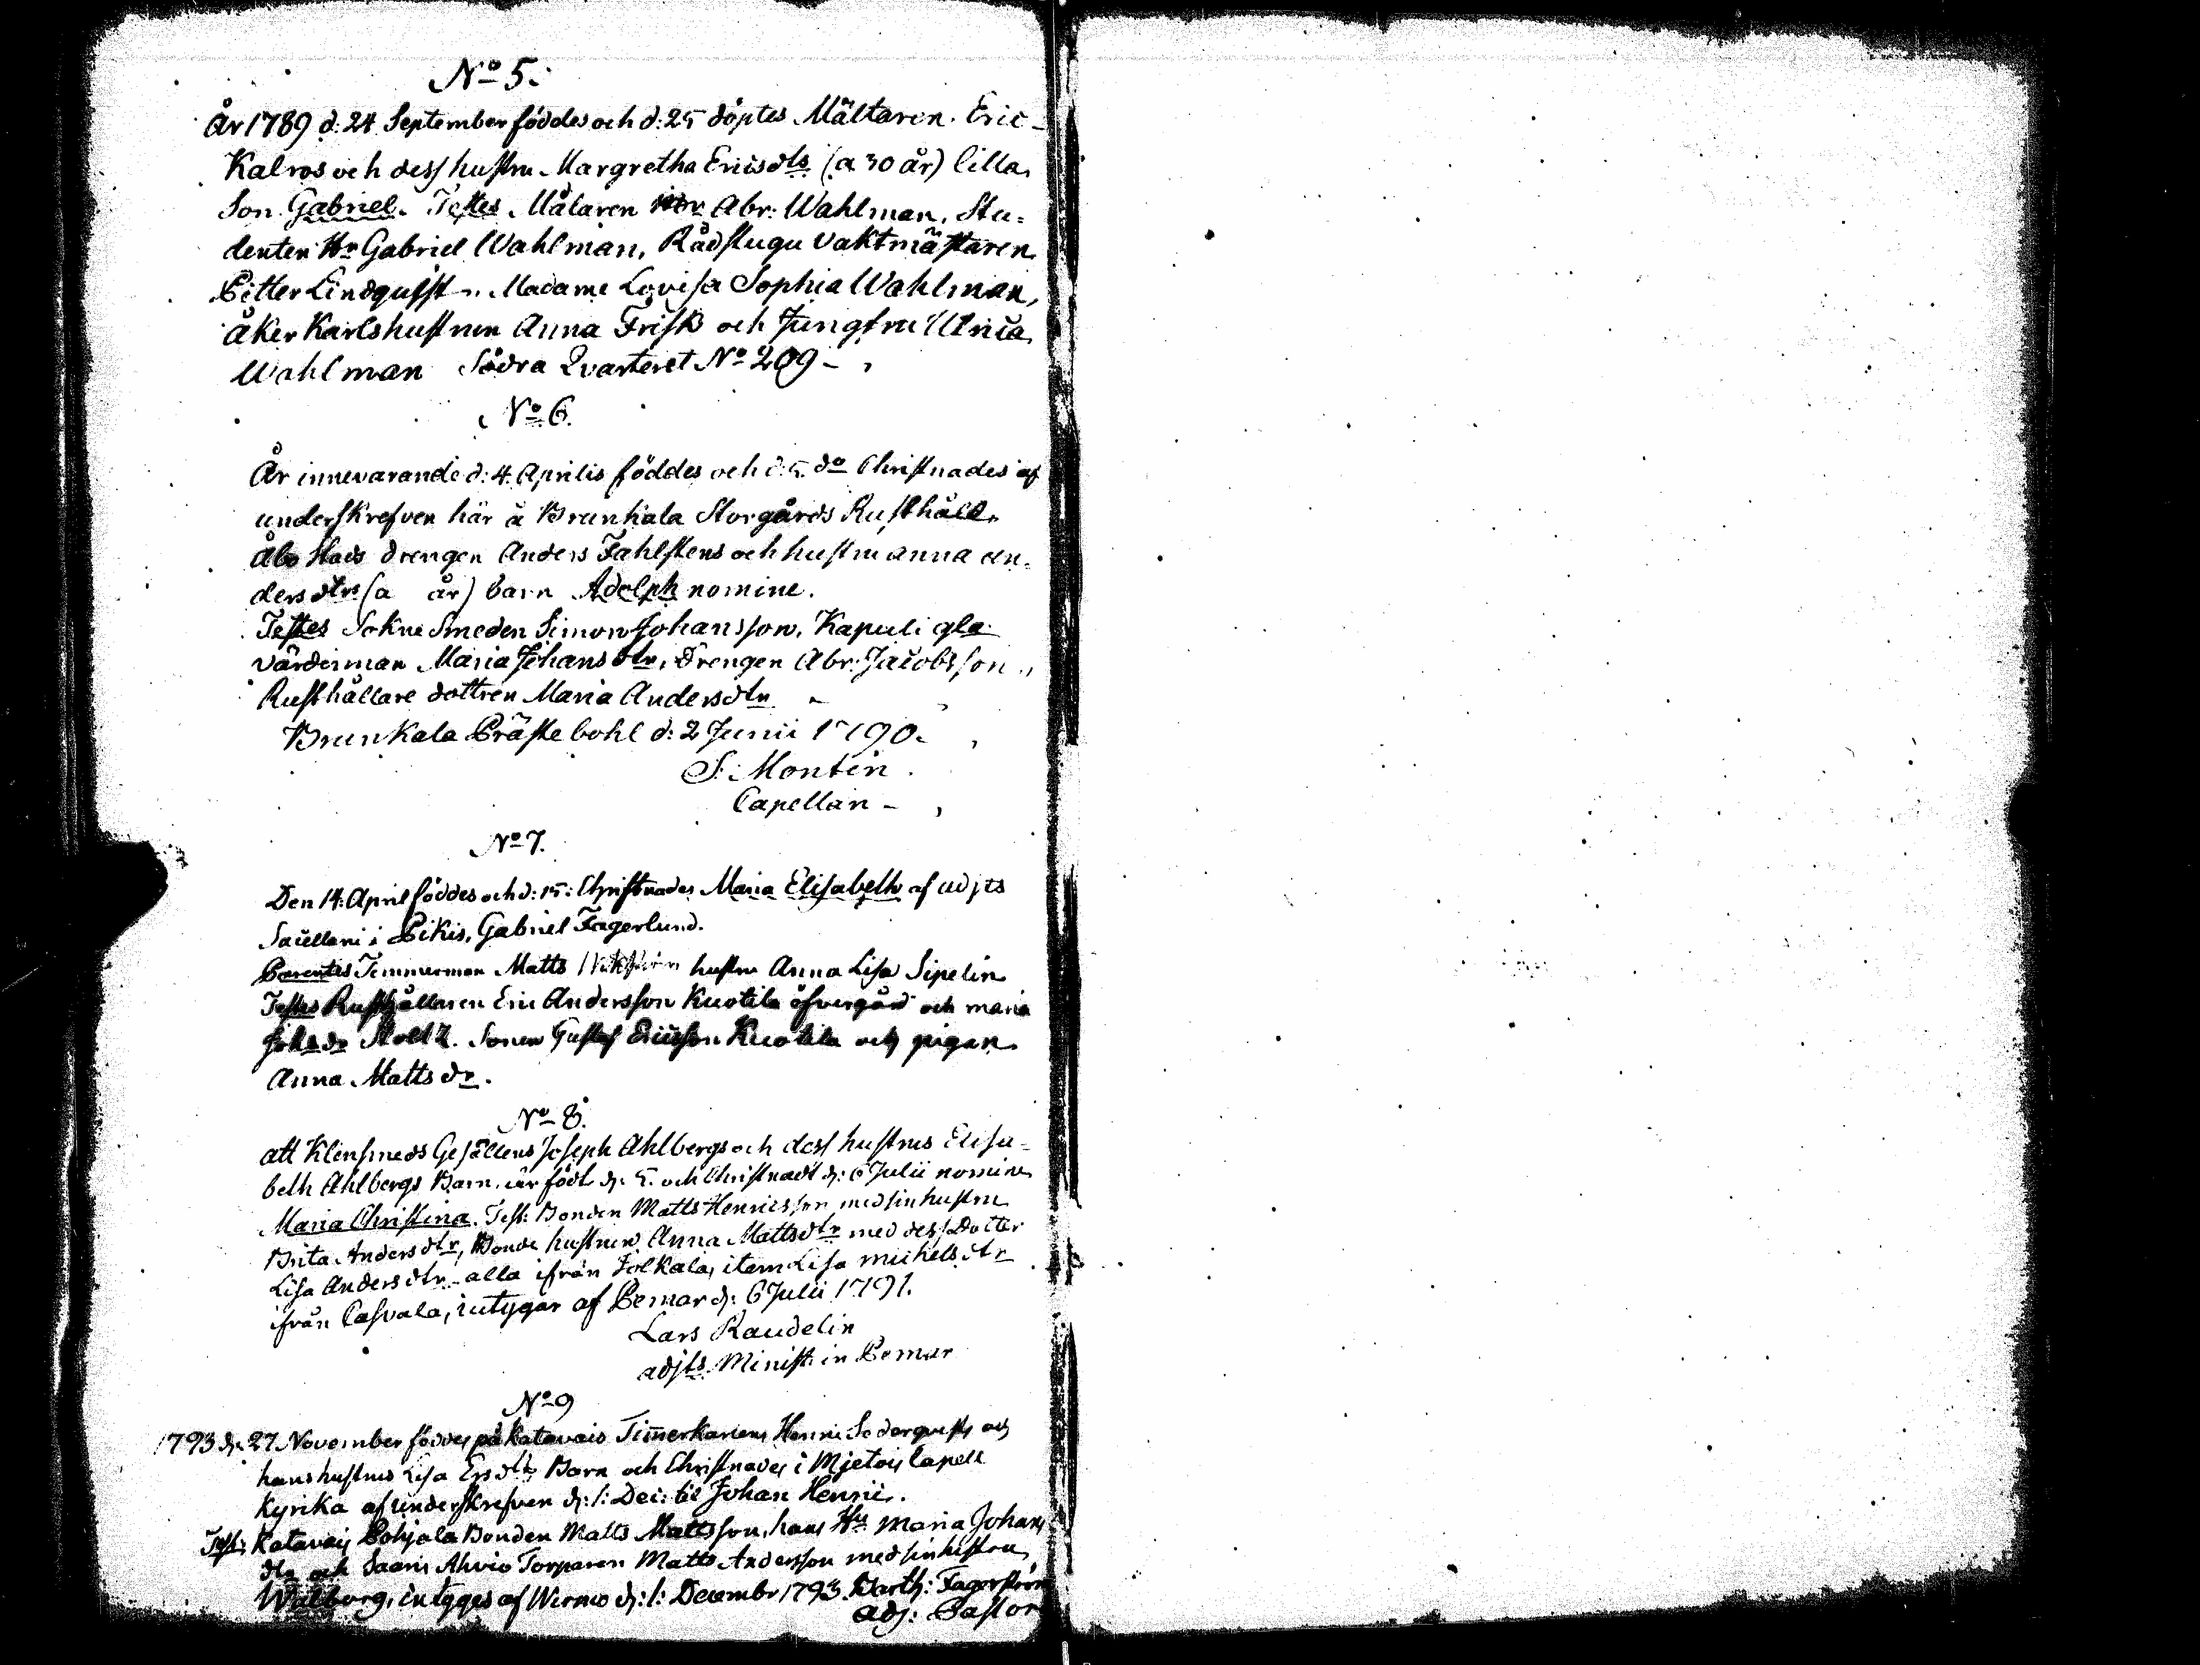 No 5.
År 1789 d: 24 September föddes och d: 25 döptes Mältaren Eric
Kalros och dess hustru Margretha Ericsdtr (a 30 år) lilla
Son Gabriel. Testes Målaren Abr: Wahlman, Stu-
denten Hr Gabriel Wahlman, Rådstugu Vaktmästaren
Petter Lindquist, Madame Lovisa Sophia Wahlman,
Åker Karlshustrun Anna Frisk och Jungfru Ulrica
Wahlman Södra Qvarteret No 209
No 6.
År innevarande d: 4 Aprilis föddes och d: 5 do Christnades af
underskrefven här å Brunkala Storgårds Rusthåld
Åbo Stads drengen Anders Fahlstens och hustru Anna An-
dersdtrs (a år) barn Adolph nomine.
Testes Sokne Smeden Simon Johansson, Kapuli gla
värderman Maria Johansdtr, Drengen Abr: Jacobsson,
Rusthållare dottren Maria Andersdtr
Brunkala Prästebohl d: 2 Junii 1790.
S: Montin
Capellan
No 7.
Den 14: April föddes och d: 15: Christnades Maria Elisabeth af adjts
Sacellani i Pikis, Gabriel Fagerlund.
Parentes Timmerman Matts hustru Anna Lisa Sipelin
Testes Rusthållaren Eric Andersson Kuotila öfvergård och Maria
Johsdr Stoltz. Sonen Gustaf Ericsson Kuotila och pigan
Anna Mattsdr.
No 8.
att Klensmeds Gesällens Joseph Ahlbergs och dess hustrus Elisa-
beth Ahlbergs Barn, är födt d: 5. och Christnadt d: 6 Julii nomine
Maria Christina. Test: Bonden Matts Henricsson med sin hustru
Brita Andersdtr, Bonde hustrun Anna Mattsdtr med dess Dotter
Lisa Andersdtr alla ifrån Jolkala, item Lisa Michelsdtr
ifrån Casvala, intygar af Pemar d: 6 Julii 1791.
Lars Raudelin
adjts Minist: in Pemar
No 9
1793 d: 27 November föddes på Katavais Timerkarlens Henric Söderqvists och
hans hustrus Lisa Ersdtrs Barn och Christnades i Mjetois Capell
Kyrika af underskrefven d: 1: Dec: til Johan Henric.
Test: Katavais Pohjala Bonden Matts Mattsson, hans Hu Maria Johans
dtr och Saaris Ahvio Torparen Matts Andersson med sin hustru
Walborg, intyges af Wirmo d: 1: Decembr 1793. Barth: Fagerström
adj: Pastor